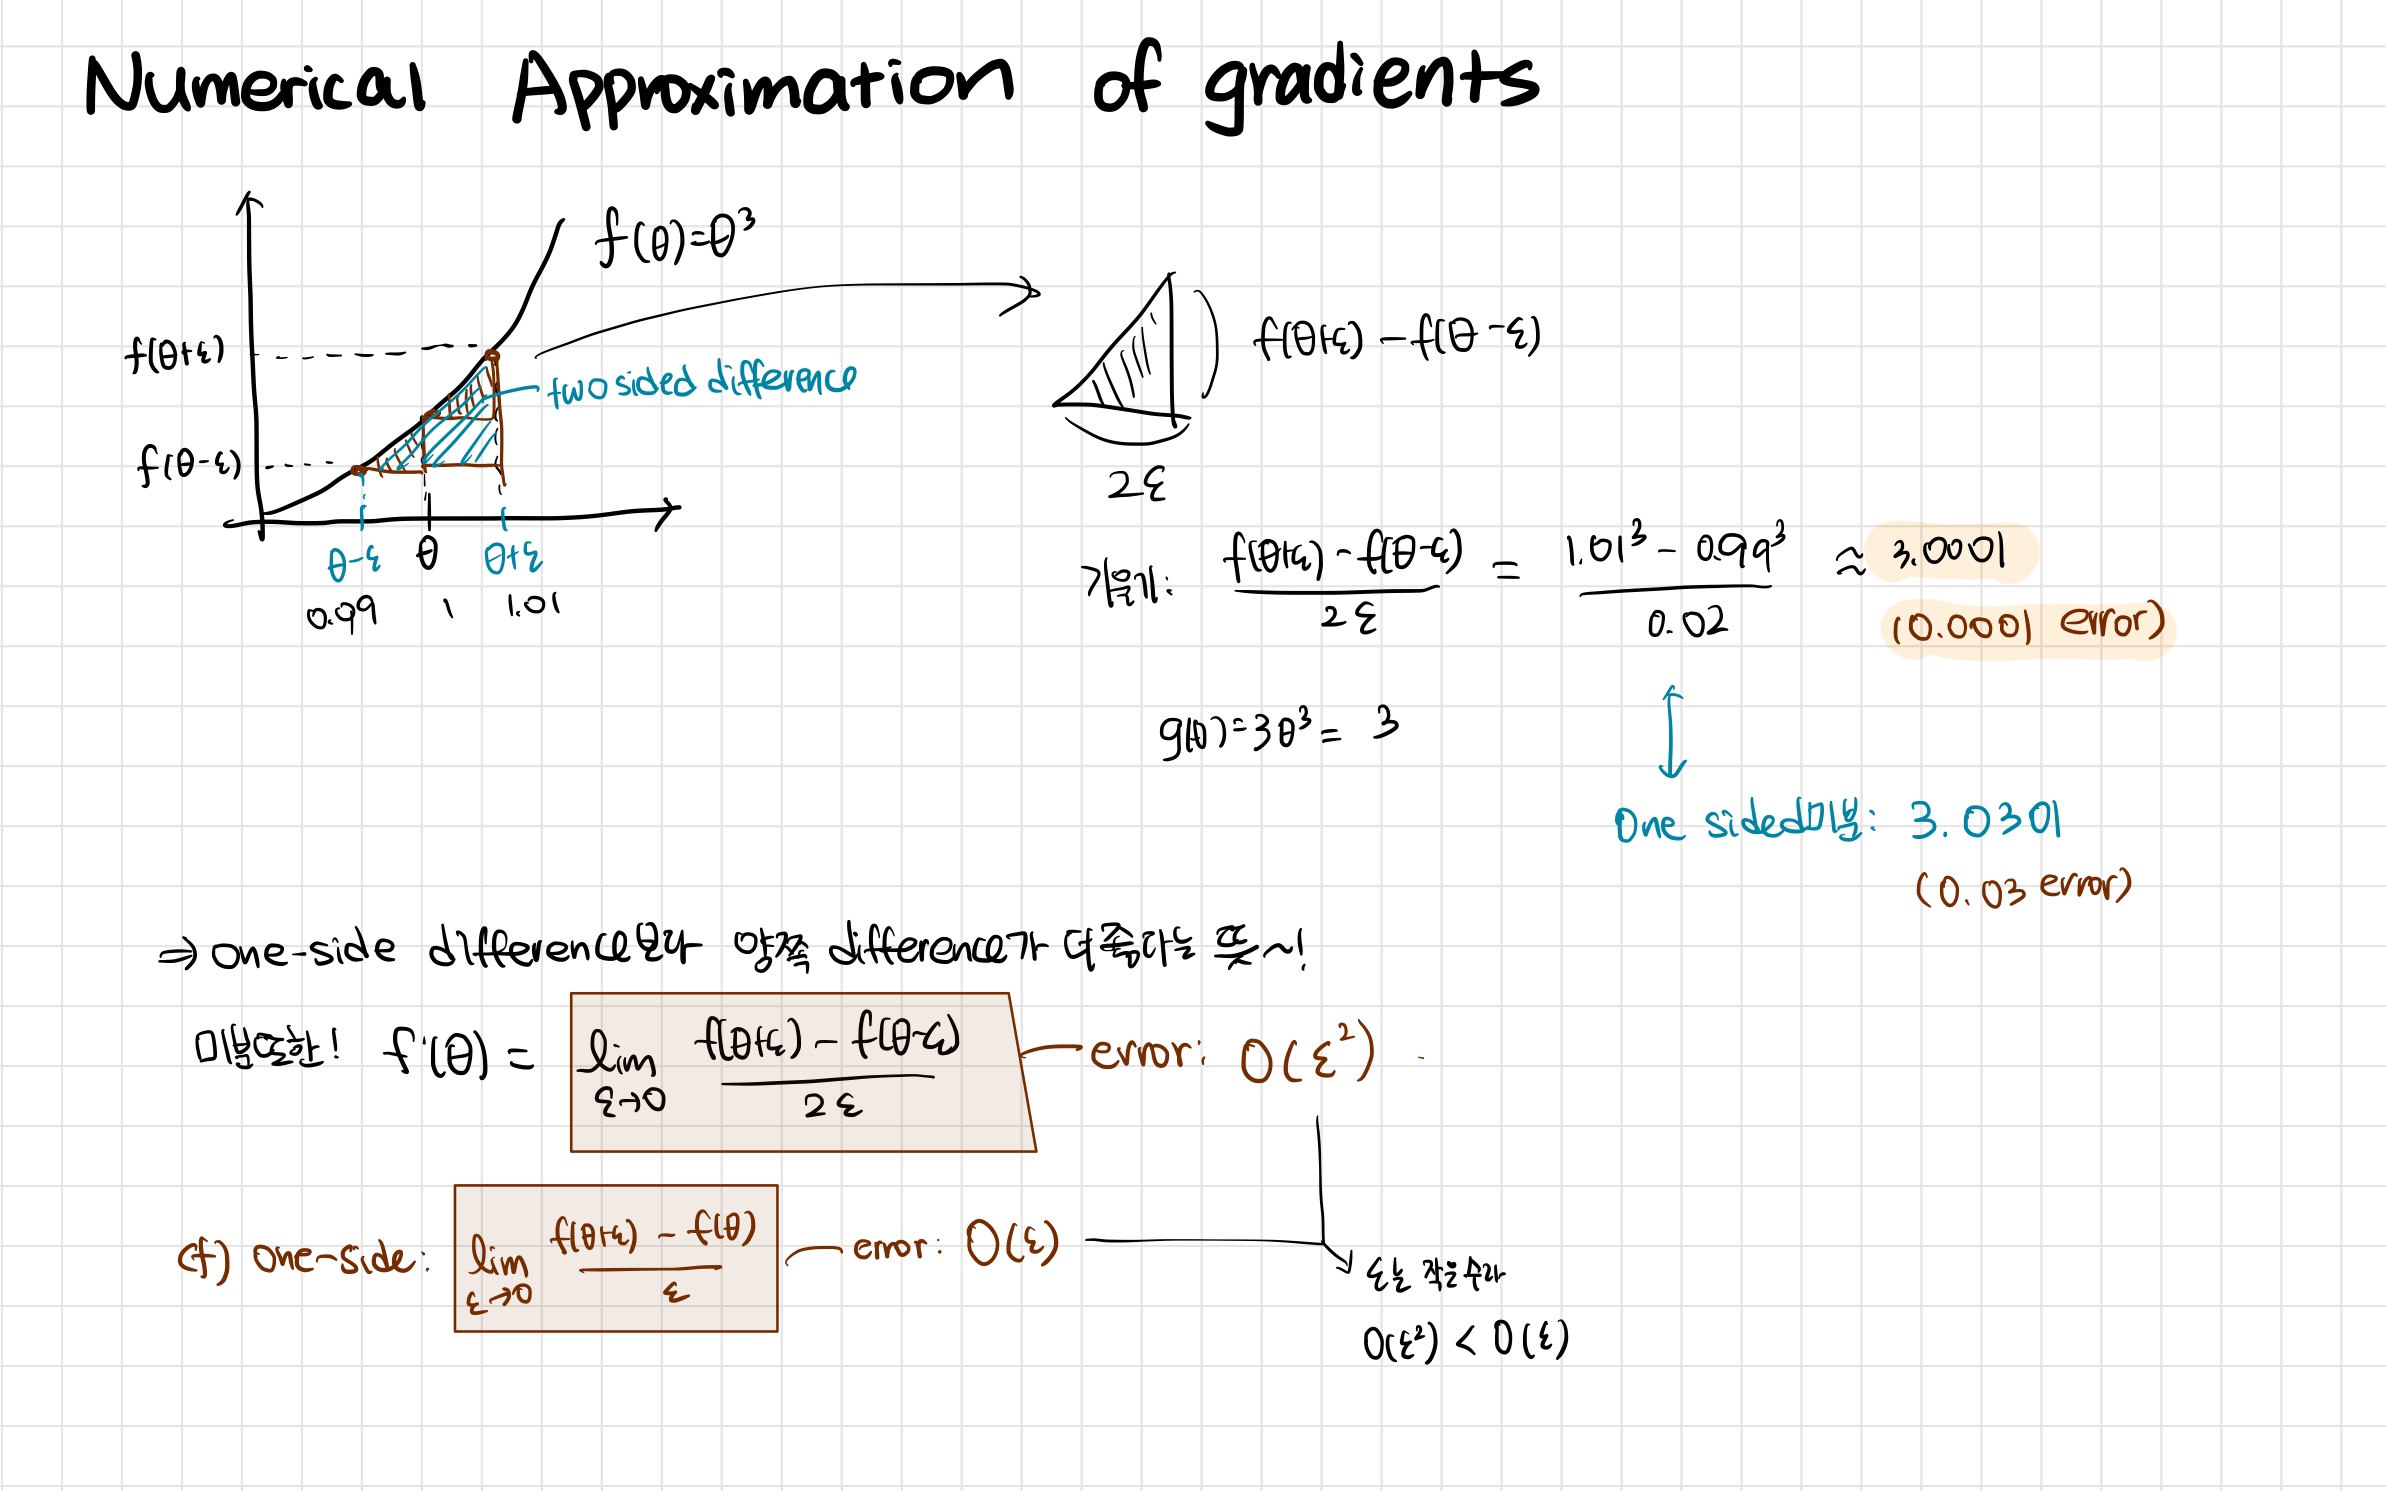 Numerical Approximation of gradients
f(θ)=θ³
f(θ+ε)
two sided difference
f(θ-ε)
θ-ε θ θ+ε
0.99 1 1.01
f(θ+ε) - f(θ-ε)
2ε
기울기: f(θ+ε) - f(θ-ε) / 2ε = 1.01³ - 0.99³ / 0.02 ≈ 3.0001
(0.0001 error)
g(θ)=3θ³= 3
One sided미분: 3.0301
(0.03 error)
⇒ one-side difference보다 양쪽 difference가 더 좋다는 뜻~!
미분또한! f'(θ) = lim ε→0 f(θ+ε) - f(θ-ε) / 2ε error: O(ε²)
cf) one-side: lim ε→0 f(θ+ε) - f(θ) / ε error: O(ε)
ε는 작은수라
O(ε²) < O(ε)